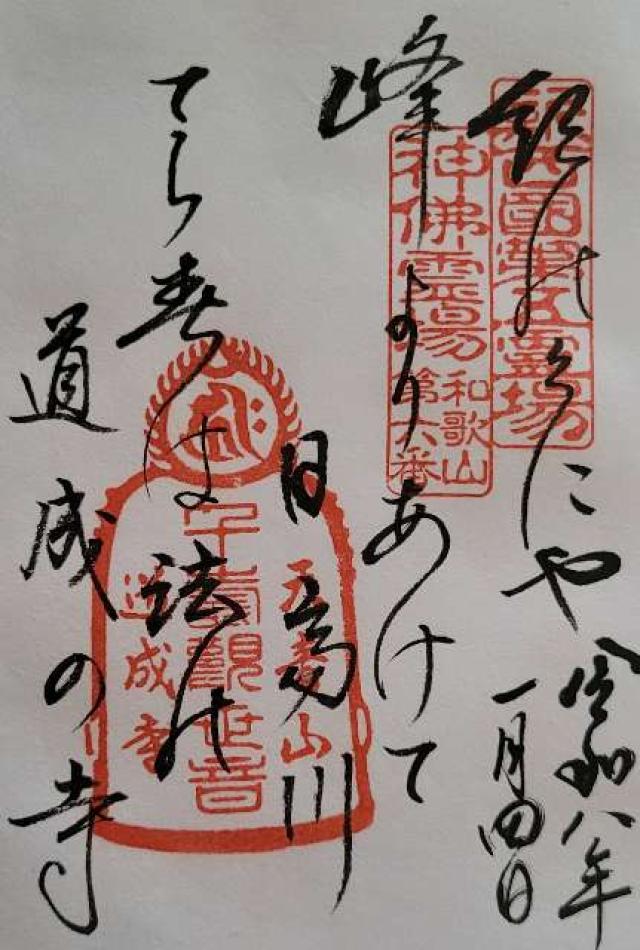 新西國第五靈場
にや
神佛霊場
和歌山
第六番
峰よりあけて
日高川
てら春は法能
道成の寺
天音山
千手觀世音
道成寺
令和八年
一月四日